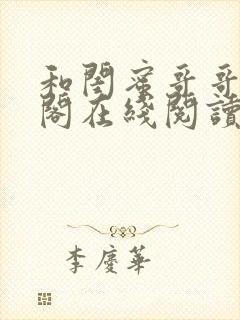 和閨蜜哥哥
閣在綫閱讀
李慶華